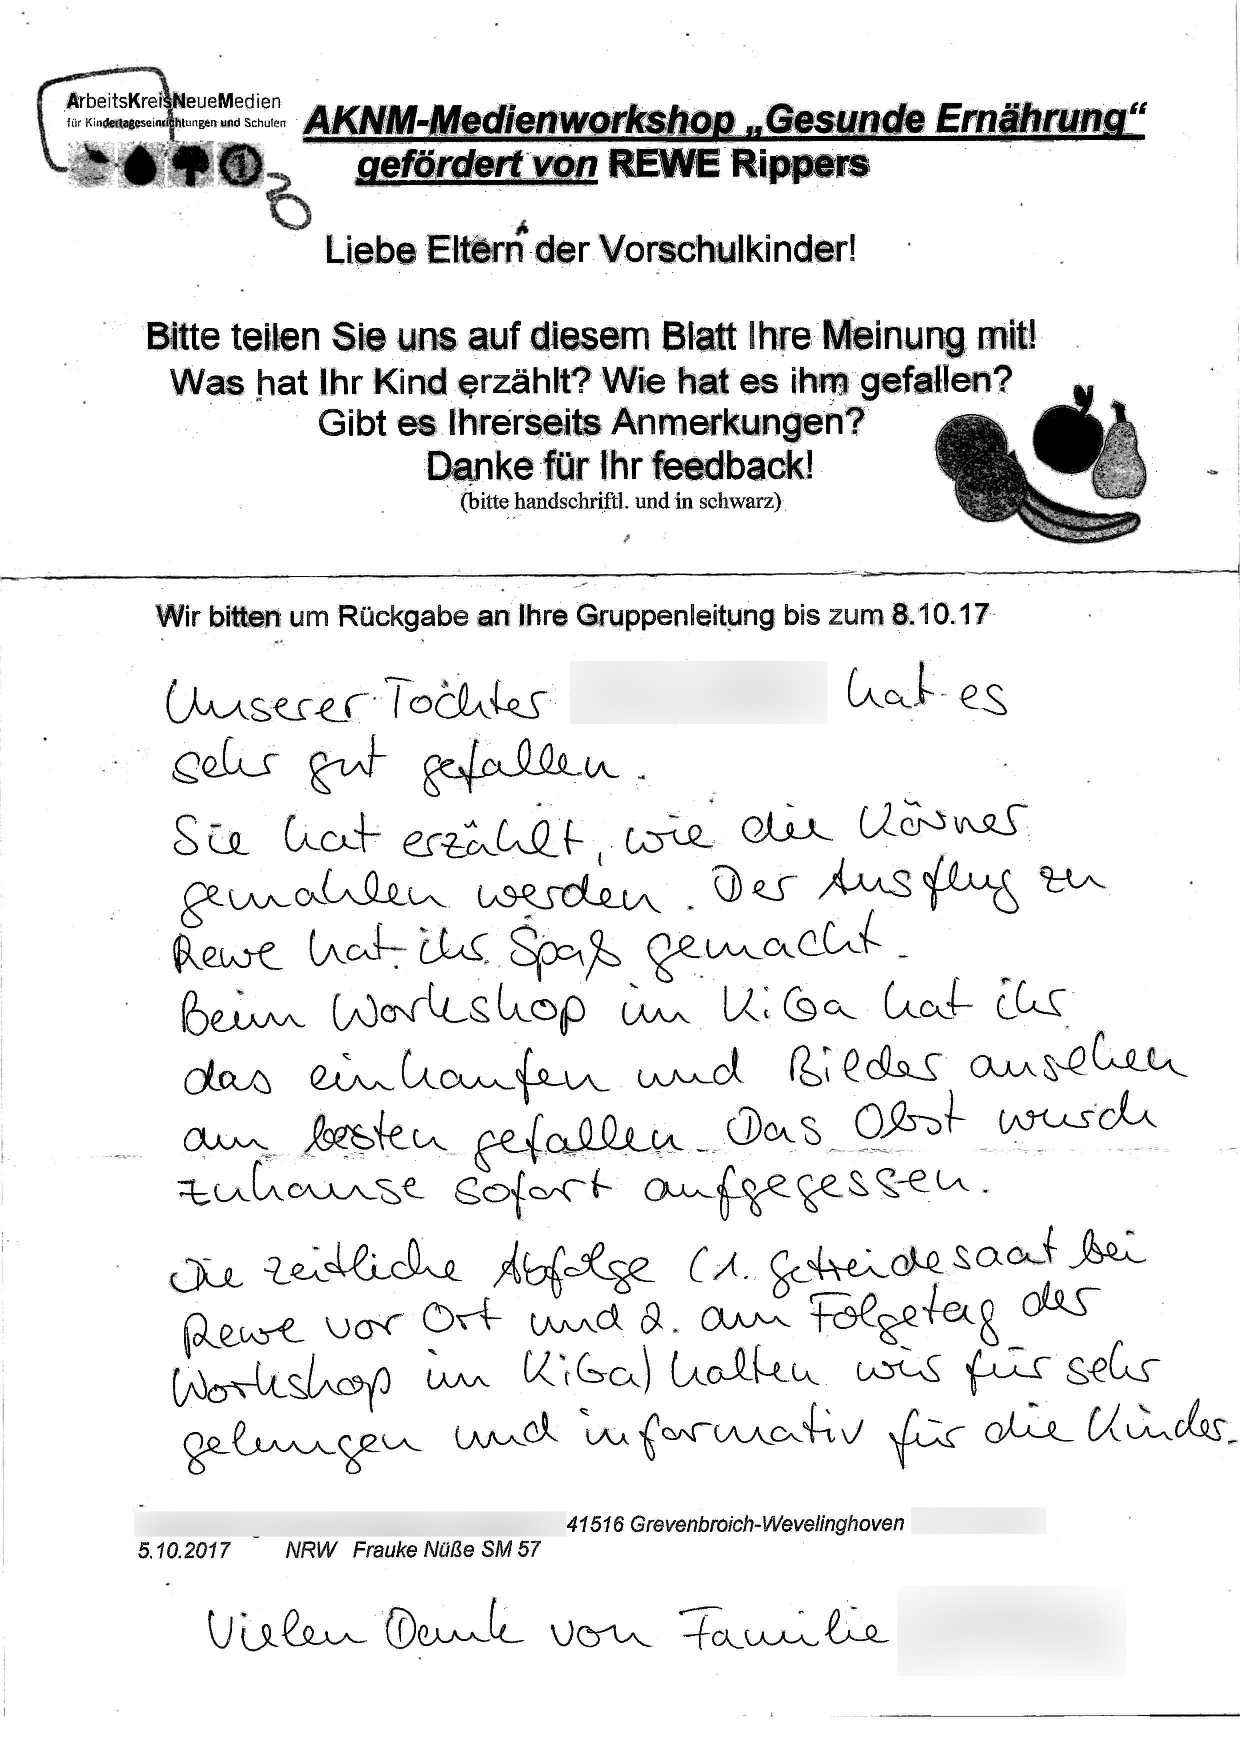 ArbeitsKreisNeueMedien
für Kindertageseinrichtungen und Schulen
AKNM-Medienworkshop „Gesunde Ernährung“
gefördert von REWE Rippers
Liebe Eltern der Vorschulkinder!
Bitte teilen Sie uns auf diesem Blatt Ihre Meinung mit!
Was hat Ihr Kind erzählt? Wie hat es ihm gefallen?
Gibt es Ihrerseits Anmerkungen?
Danke für Ihr feedback!
(bitte handschriftl. und in schwarz)
Wir bitten um Rückgabe an Ihre Gruppenleitung bis zum 8.10.17
Unserer Tochter hat es
sehr gut gefallen.
Sie hat erzählt, wie die Körner
gemahlen werden. Der Ausflug zu
Rewe hat ihr Spaß gemacht.
Beim Workshop im KiGa hat ihr
das einkaufen und Bilder ansehen
am besten gefallen. Das Obst wurde
zuhause sofort aufgegessen.
Die zeitliche Abfolge (1. Getreidesaat bei
Rewe vor Ort und 2. am Folgetag der
Workshop im KiGa) halten wir für sehr
gelungen und informativ für die Kinder.
41516 Grevenbroich-Wevelinghoven
5.10.2017 NRW Frauke Nüße SM 57
Vielen Dank von Familie